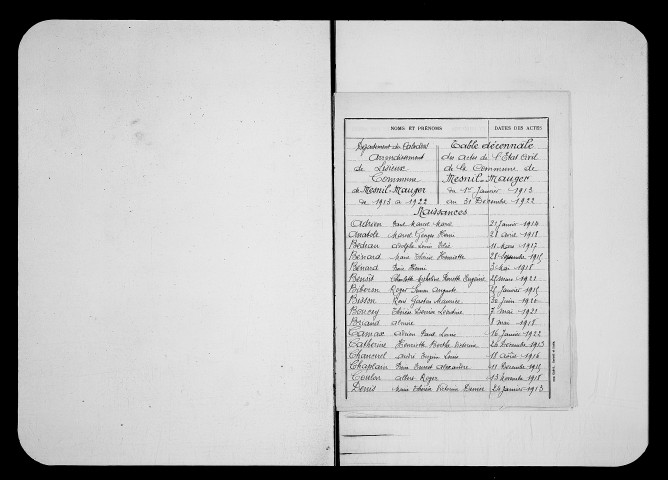 NOMS ET PRÉNOMS DATES DES ACTES
Département du Calvados
Arrondissement
de Lisieux
Commune
de Mesnil-Mauger
de 1913 à 1922
Table décennale
des actes de l'Etat Civil
de la Commune de
Mesnil-Mauger
du 1er Janvier 1913
au 31 Décembre 1922
Naissances
Adrien Marcel 21 Janvier 1914
Anatole Marcel Georges Henri 28 Avril 1918
Bedeau Adolphe Louis 11 Mars 1917
Bénard Marie Henriette 28 Septembre 1915
Bénard Henri 3 Mai 1918
Benoît Charlotte Eugénie 1921
Biberon Roger Auguste Janvier 1915
Bisson René Gaston Maurice 30 Juin 1920
Boucey Thérèse Denise 7 Mai 1921
Briand 8 Mai 1918
Camax Adrien Louis 16 Janvier 1922
Catherine Henriette Berthe 26 Décembre 1913
Chancerel André Eugène Louis 18 Août 1916
Chaplain Ernest Alexandre 11 Décembre 1915
Coulon Albert Roger 13 Novembre 1918
Denis Marie Thérèse Victorine 24 Janvier 1913